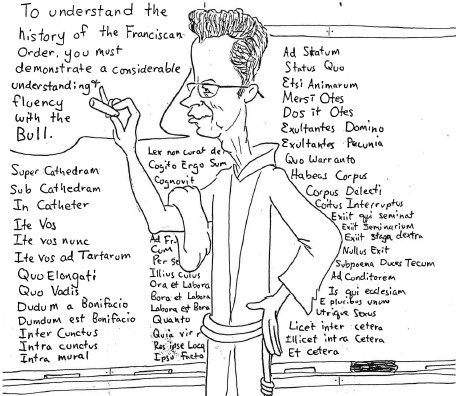 To understand the
history of the Franciscan
Order, you must
demonstrate a considerable
understanding &
fluency
with the
Bull.
Super Cathedram
Sub Cathedram
In Catheter
Ite Vos
Ite vos nunc
Ite vos ad Tartarum
Quo Elongati
Quo Vadis
Dudum a Bonifacio
Dumdum est Bonifacio
Inter Cunctus
Intra cunctus
Intra mural
Lex non curat de
Cogito Ergo Sum
Cognovit
Ad Fr
Cum
Per Se
Illius cuius
Ora et Labora
Bora et Labora
Labora et Bora
Quanto
Quia vir
Res ipse Loq
Ipso facto
Ad Statum
Status Quo
Etsi Animarum
Mersi Otes
Dos it Otes
Exultantes Domino
Exultantes Pecunia
Quo Warranto
Habeas Corpus
Corpus Delecti
Coitus Interruptus
Exiit qui seminat
Exiit Seminarium
Exiit stage dextra
Nullus Exit
Subpoena Duces Tecum
Ad Conditorem
Is qui ecclesiam
E pluribus unum
Utrique Sexus
Licet inter cetera
Illicet intra Cetera
Et cetera